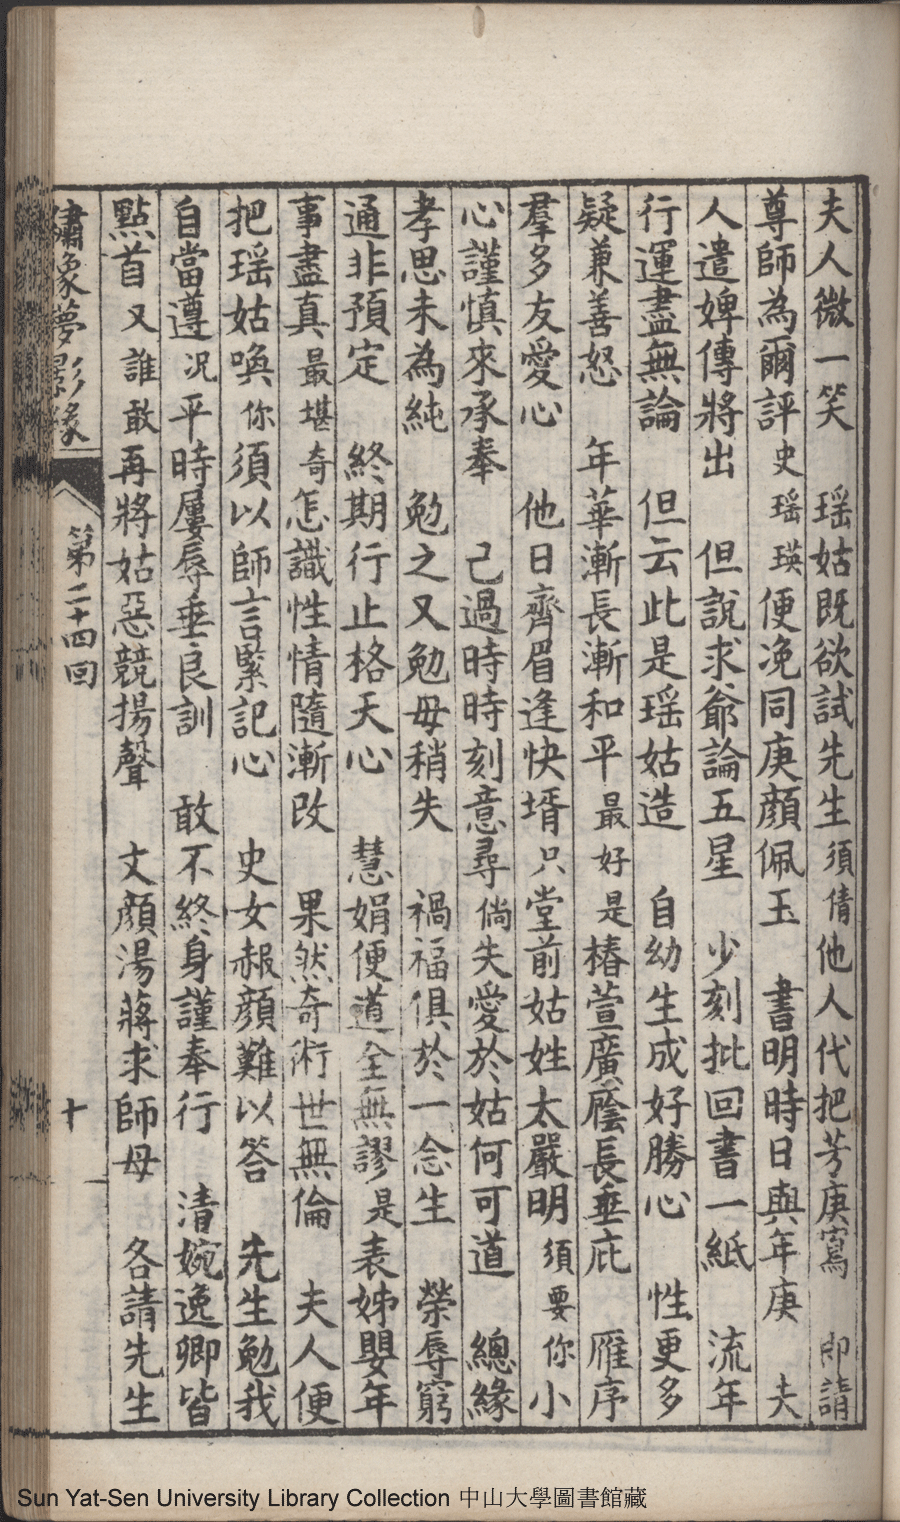 夫人微一笑　瑶姑既欲試先生須倩他人代把芳庚寫　即請
尊師為爾評史瑶瑛便凂同庚顏佩玉　書明時日與年庚　夫
人遣婢傳將出　但說求爺論五星　少刻批回書一紙　流年
行運盡無論　但云此是瑶姑造　自幼生成好勝心　性更多
疑兼善怒　年華漸長漸和平最好是椿萱廣廕長垂庇　雁序
羣多友愛心　他日齊眉逢快壻只堂前姑姓太嚴明須要你小
心謹慎來承奉　己過時時刻意尋倘失愛於姑何可道　總緣
孝思未為純　勉之又勉毋稍失　禍福俱於一念生　榮辱窮
通非預定　終期行止格天心　慧娟便道全無謬是表姊嬰年
事盡真最堪奇怎識性情隨漸改　果然奇術世無倫　夫人便
把瑶姑喚你須以師言緊記心　史女赧顏難以答　先生勉我
自當遵况平時屢辱垂良訓　敢不終身謹奉行　清婉逸卿皆
點首又誰敢再將姑惡競揚聲　文顏湯蔣求師母　各請先生
繡像夢影緣
第二十四回
十
Sun Yat-Sen University Library Collection 中山大學圖書館藏